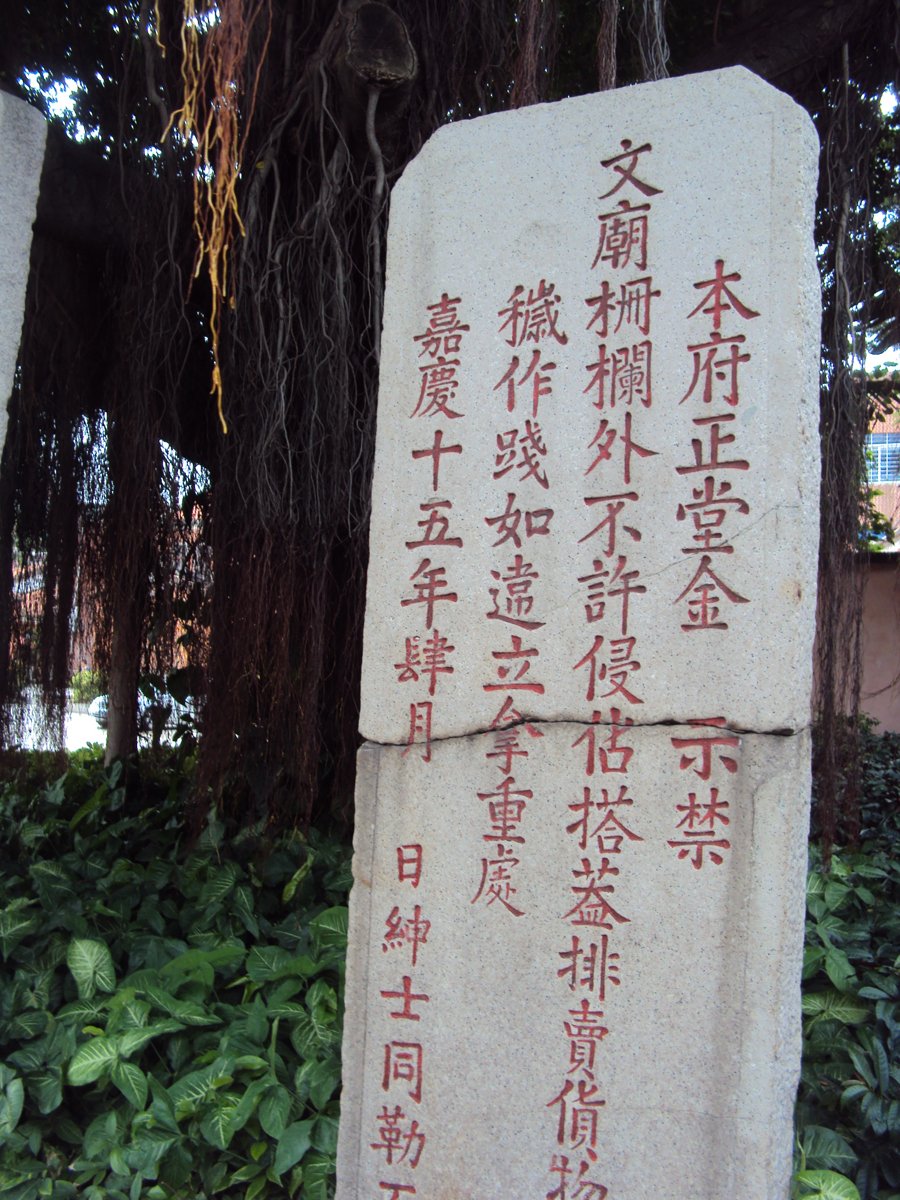 本府正堂金 示禁
文廟柵欄外不許侵佔搭蓋排賣貨物
穢作踐如違立拿重處
嘉慶十五年肆月 日紳士同勒